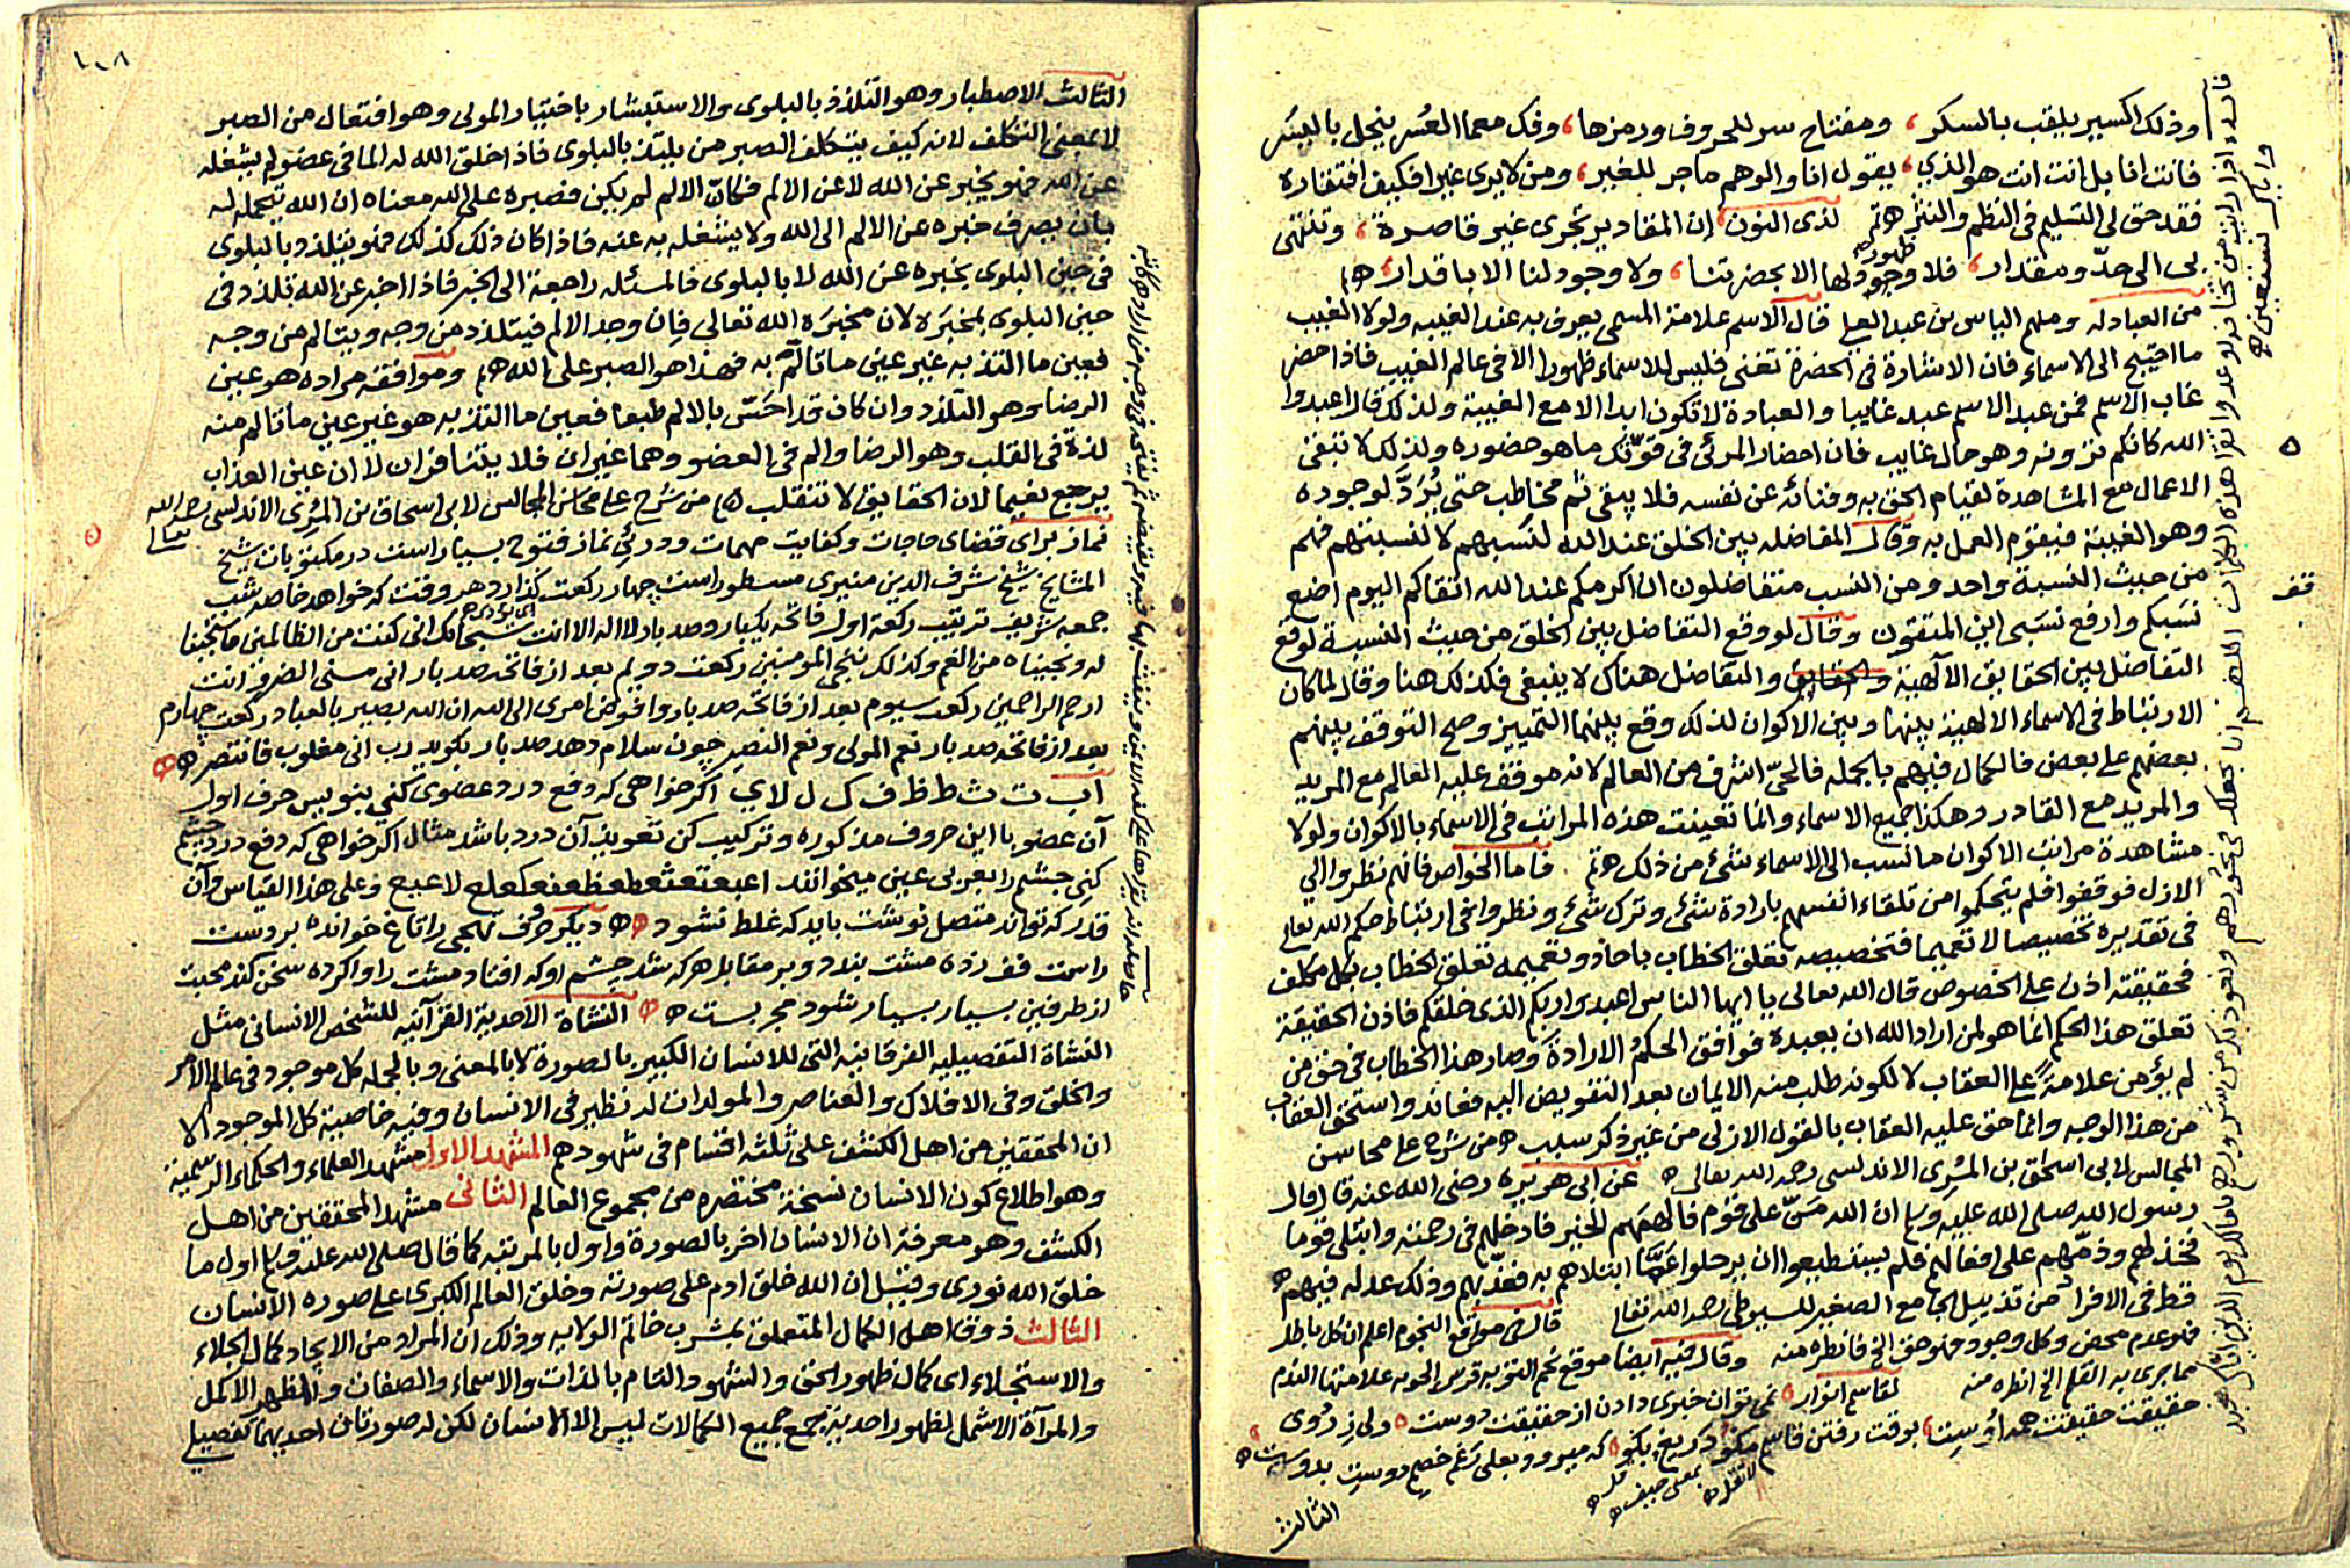 وذلك اكسير يلقب بالسكر ، ومفتاح سر للحروف ورمزها ، وفك معما العُسر ينحل باليسر
فانت انا بل انت انت هو الذي ، يقول انا والوهم ماجر للغير ، ومن لا يرى غيرا فكيف افتقاره
فقد حق لى التسليم فى النظم والنثر هتم لذى النون ان المقادير تجرى غير قاصرة ، وتنتهى
لى الى حدّ ومقدار ، فلا وجود لها الا بحضرتنا ، ولا وجود لنا الا باقدار هم
ظهوره
من العبادله ومنهم الياس بن عبد العلي قال الاسم علامة المسمى يعرف به عند الغيبه ولولا الغيب
ما احتيج الى الاسماء فان الاشارة فى الحضرة تغنى فليس للاسماء ظهورا الا فى عالم الغيب فاذا حضر
غاب الاسم فمن عبد الاسم عبد غايبا والعبادة لا تكون ابدا الا مع الغيبة ولذلك قال اعبدوا
الله كانكم ترونه وهو حال غايب فان احضار المرئى فى قوّتك ما هو حضوره ولذلك لا تبقى
الاعمال مع المشاهدة لقيام الحق به وفنائه عن نفسه فلا يبقى ثم مخاطب حتى يُرَدَّ لوجوده
وهو الغيبة فيقوم العمل به وقال المفاضله بين الخلق عند الله لنسبهم لا لنسبتهم فهم
من حيث النسبة واحد ومن النسب متفاضلون ان اكرمكم عند الله اتقاكم اليوم اضع
نسبكم وارفع نسبى اين المتقون وقال لو وقع التفاضل بين الخلق من حيث النسبة لوقع
التفاضل بين الحقايق الالهية والتفاضل هناك لا ينبغى فكذلك هنا وقال لما كان
الارتباط فى الاسماء الالهية بينها وبين الاكوان لذلك وقع بينهما التمييز وصح التوقف بينهم
بعضهم على بعض فالكمال فيهم بالجمله فالحىّ اشرف من العالم لانه موقف عليه العالم مع المريد
والمريد مع القادر وهكذا جميع الاسماء وانما تعينت هذه المراتب فى الاسماء بالاكوان ولولا
مشاهدة مراتب الاكوان ما نسب الى الاسماء شئ من ذلك هتم فاما الخواص فانهم نظروا الى
الازل فوقفوا فلم يتحكموا من تلقاء انفسهم بارادة شئ وترك شئ ونظروا فى ارتباط حكم الله تعالى
فى تقديره تخصيصا لا تعميما فتخصيصه تعلق الخطاب باحاد وتعميمه تعلق الخطاب بكل مكلف
فحقيقته اذن على الخصوص قال الله تعالى يا ايها الناس اعبدوا ربكم الذى خلقكم فاذن الحقيقة
تعلق هذا الحكم انما هو لمن اراد الله ان يعبده فوافق الحكم الارادة وصار هذا الخطاب فى حق من
لم يؤمن علامةً على العقاب لا لكونه طلب منه الايمان بعد التفويض اليه فعاند واستحق العقاب
من هذا الوجه وانما حق عليه العقاب بالقول الازلى من غير ذكر سبب ه من شرح على محاسن
المجالس لابى اسحق بن المرى الاندلسى رحمه الله تعالى ه عن ابى هريره رضى الله عنه قال قال
رسول الله صلى الله عليه وسلم ان الله منّ على قوم فالهمهم الخير فادخلهم فى رحمته وابتلى قوما
فخذلهم وذمّهم على افعالهم فلم يستطيعوا ان يرحلوا عمّا ابتلاهم به فعذّبهم وذلك عدله فيهم
قط فى الافراد من تذييل الجامع الصغير للسيوطى رحمه الله تعالى قال فى مواقع النجوم اعلم ان كل باطل
فهو عدم محض وكل وجود فهو حق الخ فانظره منه وقال فيه ايضا موقع نجم التوبه قرس الحوبه علامتها الندم
مما جرى به القلم الخ انظره منه لقاسم انوار ه نمى توان خبرى دادن از حقيقت دوست ه ولى ز روى
حقيقت حقيقت همه اوست ، بوقت رفتن قاسم مكو دريغ بكو ، كه ميرود بعلى رغم خصم دوست بدوست ه
الثالث
قف
١٠٨
الثالث الاصطبار وهو التلذذ بالبلوى والاستبشار باختيار المولى وهو افتعال من الصبر
لا بمعنى التكلف لانه كيف يتكلف الصبر من يلتذ بالبلوى فاذا خلق الله له الما فى عضو لم يشغله
عن الله فهو يخبر عن الله لا عن الالم فكان الالم لم يكن فصبره على الله معناه ان الله يتحمله له
بان يصرف خبره عن الالم الى الله ولا يشغله به عنه فاذا كان ذلك كذلك فهو يتلذذ بالبلوى
فى حين البلوى بخبره عن الله لا بالبلوى فالمسئله راجعة الى الخبر فاذا اخبر عن الله تلذذ فى
حين البلوى بمخبَره لان مخبَره الله تعالى فان وجد الالم فيتلذذ من وجه ويتالم من وجه
فعين ما التذ به غير عين ما تالم به فهذا هو الصبر على الله هم وموافقة مراده هو عين
الرضا وهو التلذذ وان كان قد احسّ بالالم طبعا فعين ما التذ به هو غير عين ما تالم منه
لذة فى القلب وهو الرضا والم فى العضو وهما غيران فلا يتنافران لا ان عين العذاب
يرجع نعيما لان الحقايق لا تنقلب ه من شرح على محاسن المجالس لابى اسحاق بن المرى الاندلسى رحمه الله تعالى
نماز براى قضاى حاجات وكفايت مهمات وورئى نماز فتوح بسيار است در مكتوبات شيخ
المشايخ شيخ شرف الدين منيرى مسطور است چهار ركعت گذارد هر وقت كه خواهد خاصه شب
جمعه شريف ترتيب ركعة اول فاتحه يكبار وصد بار لا اله الا انت سبحانك انى كنت من الظالمين فاستجبنا
له ونجيناه من الغم وكذلك ننجى المومنين ركعت دويم بعد از فاتحه صد بار انى مسنى الضر وانت
ارحم الراحمين ركعت سيوم بعد از فاتحه صد بار وافوض امرى الى الله ان الله بصير بالعباد ركعت چهارم
بعد از فاتحه صد بار نعم المولى ونعم النصير چون سلام دهد صد بار بكويد رب انى مغلوب فانتصر ه
ا ب ت ث ط ظ ف ك ل لا ي اكر خواهى كه دفع درد عضوى كنى بنويس حرف اول
آن عضو با اين حروف مذكوره وتركيب كن تعويذ آن درد باشد مثال اكر خواهى كه دفع درد چشم
كنى چشم را بعربى عين ميخوانند اعبعتعثعطعظعفعكعلع لاعيع وعلى هذا القياس وآن
قدر كه تواند متصل نوشت بايد كه غلط نشود ه ديكر حروف تهجى را تا غ خوانده بر دست
راست قف زده مشت بندد وبر مقابل هر كه شد چشم او كه افتاد مشت را واكرده سخن كند محبت
از طرفين بسيار بسيار شود مجرب ست ه النشاة الاحدية القرآنيه للشخص الانسانى مثل
النشاة التفصيليه الفرقانيه التى للانسان الكبير بالصورة لا بالمعنى وبالجمله كل موجود فى عالم الامر
والخلق وفى الافلاك والعناصر والمولدات له نظير فى الانسان وفيه خاصية كل الموجود الا
ان المحققين من اهل الكشف على ثلثه اقسام فى شهودهم المشهد الاول مشهد العلماء والحكماء الرسمية
وهو اطلاع كون الانسان نسخة مختصره من مجموع العالم الثانى مشهد المحققين من اهل
الكشف وهو معرفة ان الانسان اخر بالصورة واول بالمرتبه كما قال صلى الله عليه وسلم اول ما
خلق الله نورى وقيل ان الله خلق ادم على صورته وخلق العالم الكبرى على صوره الانسان
الثالث ذوق اهل الكمال المتعلق بمشرب خاتم الولايه وذلك ان المراد من الايجاد كمال الجلاء
والاستجلاء اى كمال ظهور الحق والشهود التام بالذات والاسماء والصفات والمظهر الاكمل
والمرآة الاشمل لظهور احدية جمع جميع الكمالات ليس الا الانسان لكن له صورتان احديهما تفصيلى